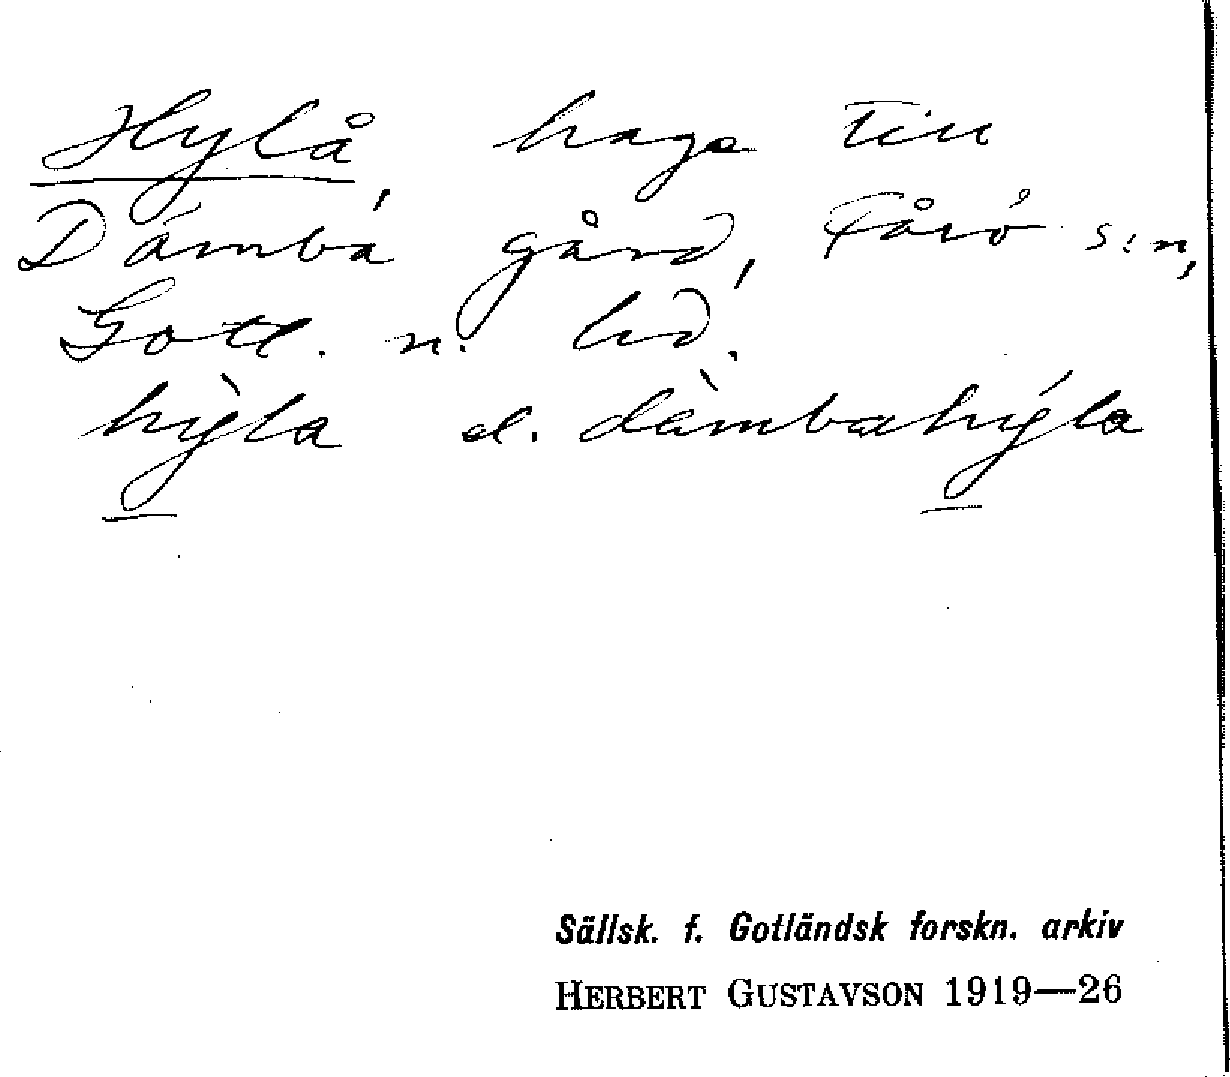 Hylå hage till
Dämba gård, Fårö s:n,
Gotl. n. hd.
hỳla el. dàmbahýla
Sällsk. f. Gotländsk forskn. arkiv
HERBERT GUSTAVSON 1919—26